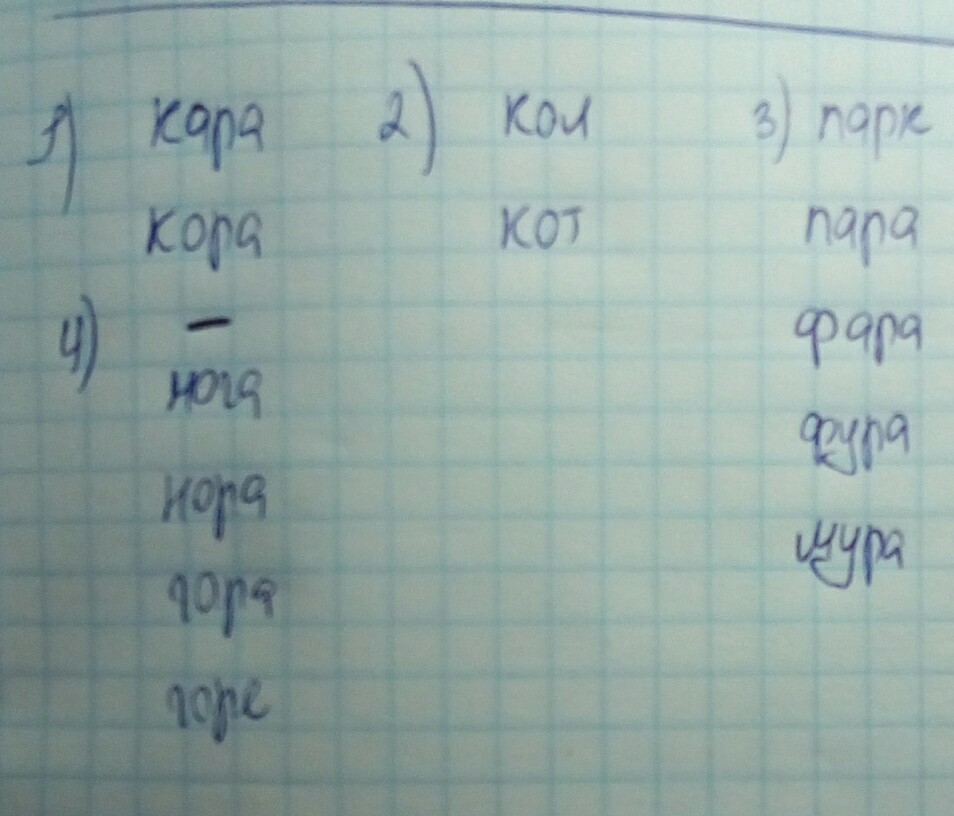 1) кара 2) кол 3) парк
кора кот пара
4) – фара
нога
фура
нора
мура
гора
горе